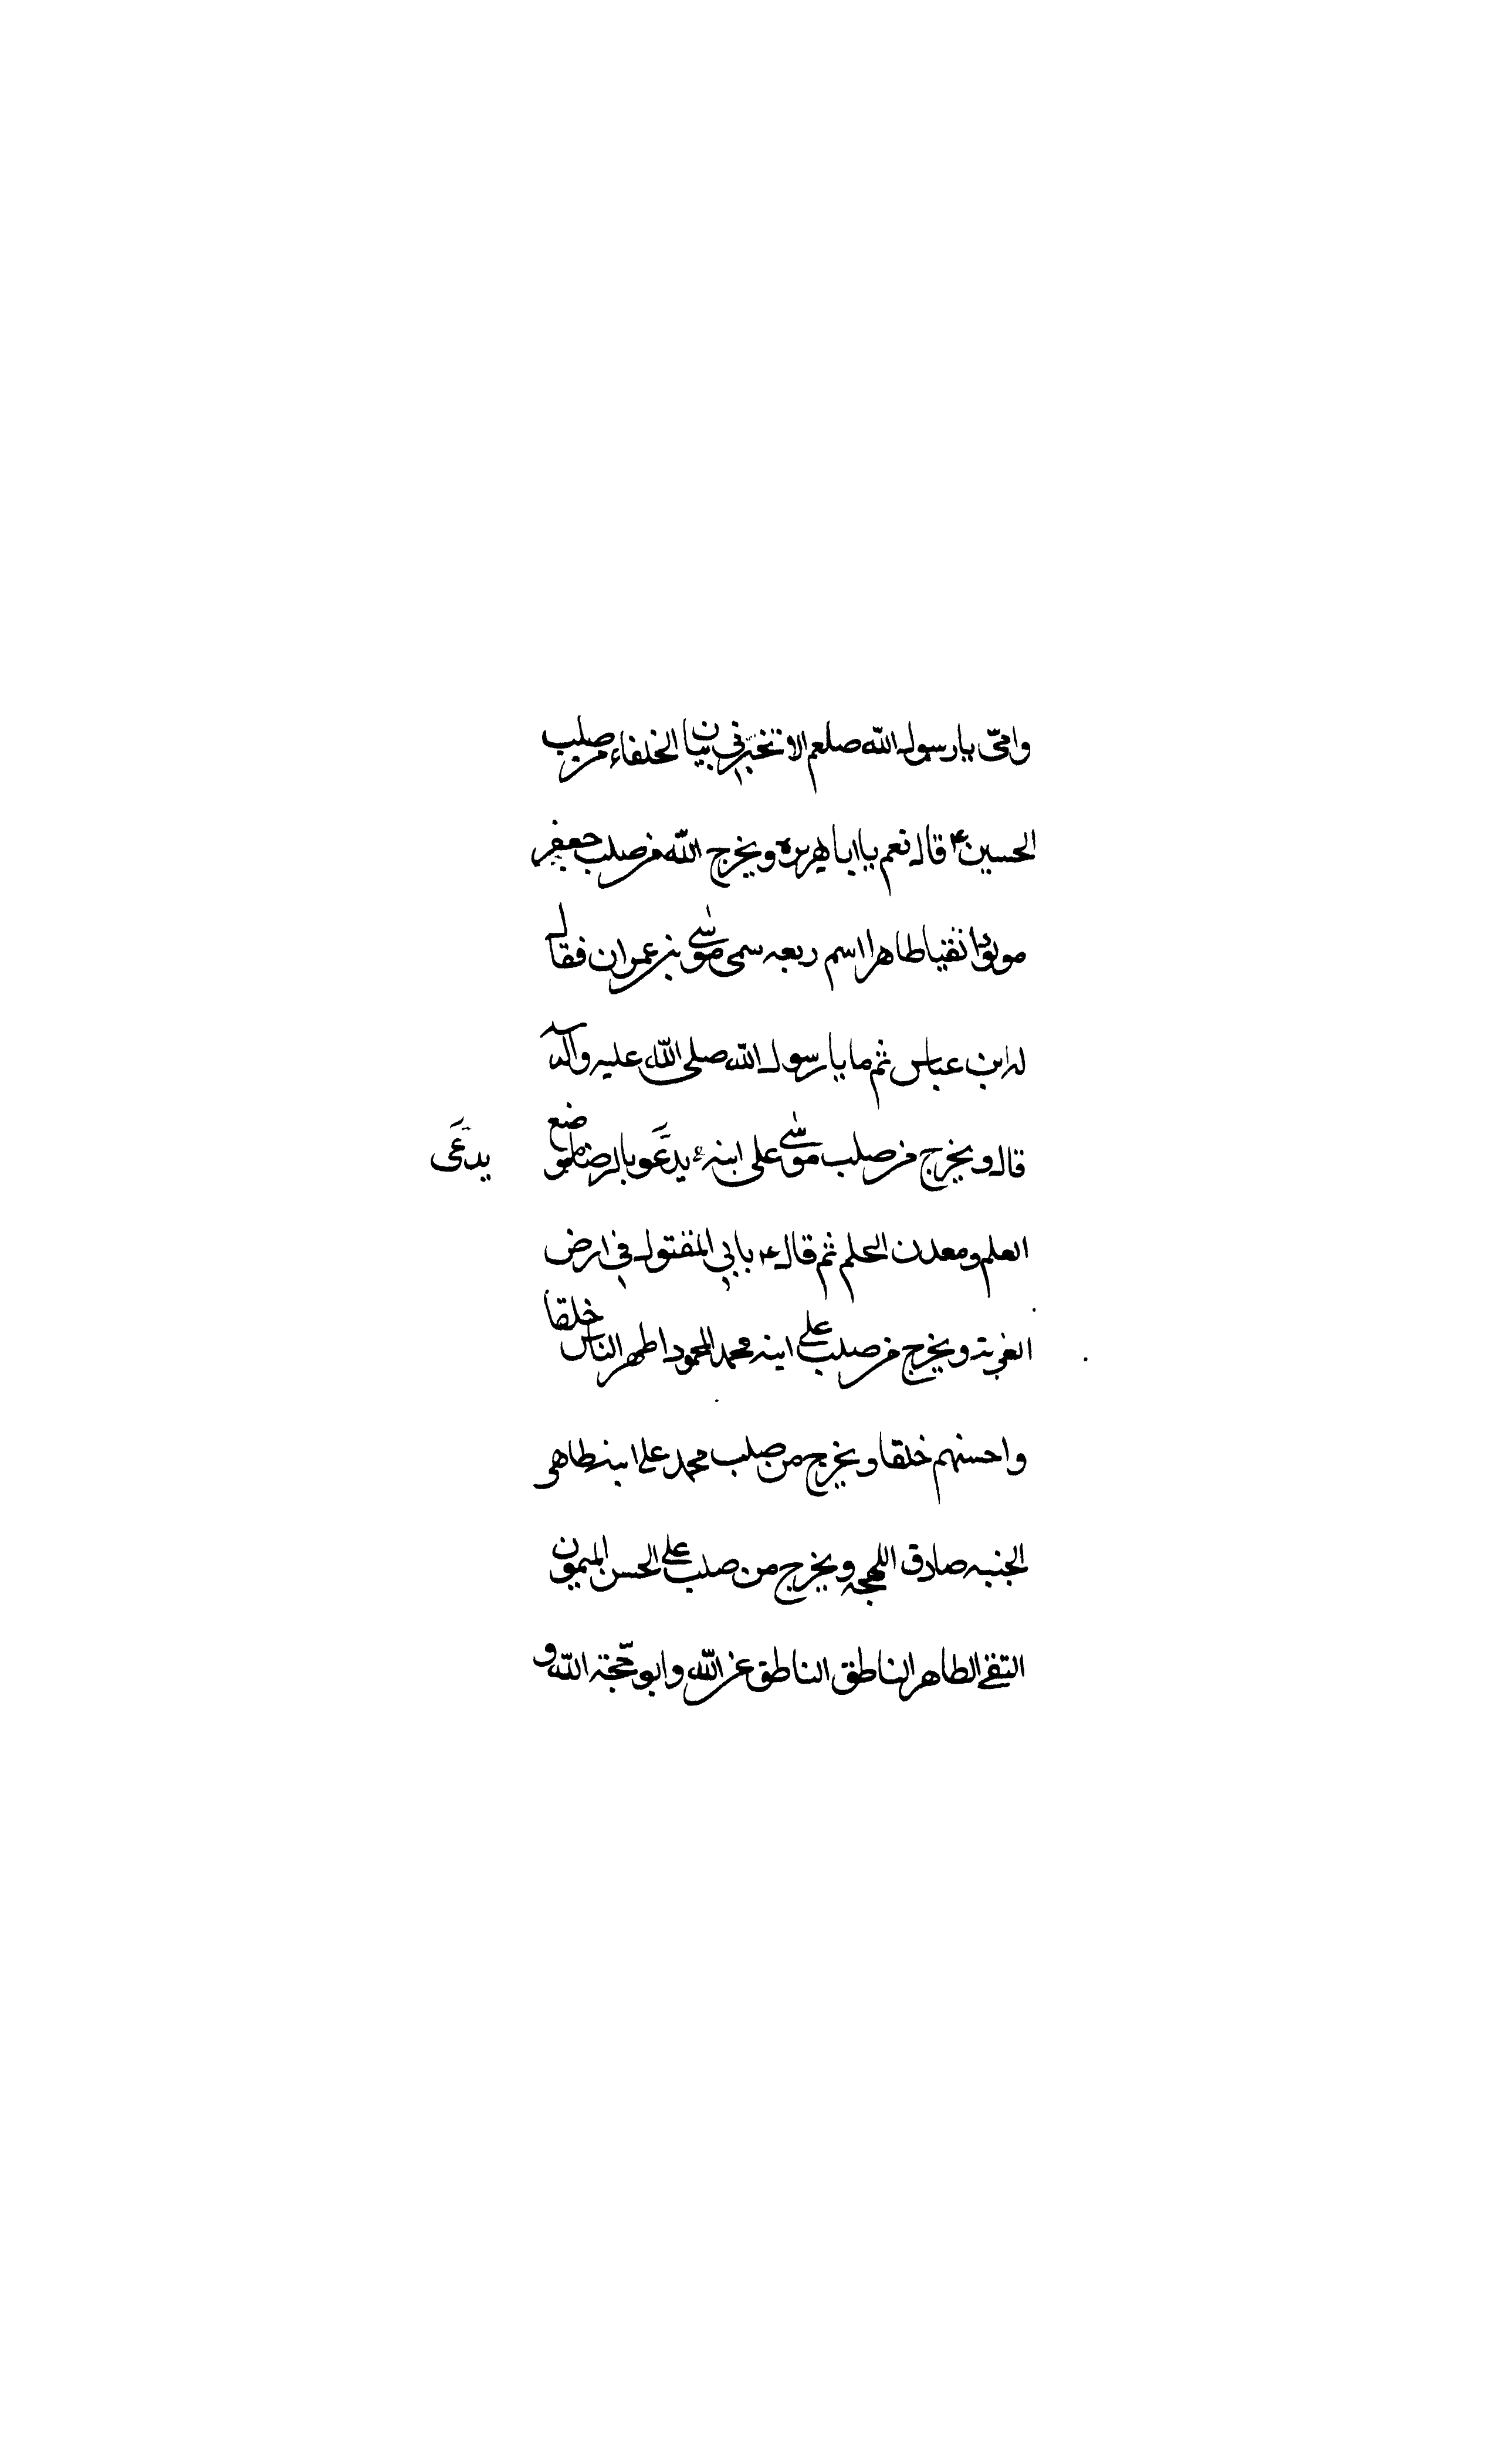 وامی یا رسول الله صلعم الا تخبرنی بیان الخلفاء من صلب
الحسین ع قال نعم یا ابا هریره و یخرج الله من صلب جعفر
مولودا تقیا طاهرا اسم ربعه سمی موسی بن عمران فقال
له ابن عباس ثم ما یا رسول الله صلی الله علیه واله
قال و یخرج من صلب موسی علی ابنه ع یدعو بالرضا موضع
یدعی
العلم و معدن الحلم ثم قال ع بابی المقتول فی ارض
الغربة و یخرج من صلب علی ابنه محمد المحمود اطهر الناس خلقا
واحسنهم خلقا و یخرج من صلب محمد علی ابنه طاهر
الجنبه صادق اللهجه و یخرج من صلب علی الحسن المیمون
التقی الطاهر الناطق الناطق عن الله وابو حجة الله و